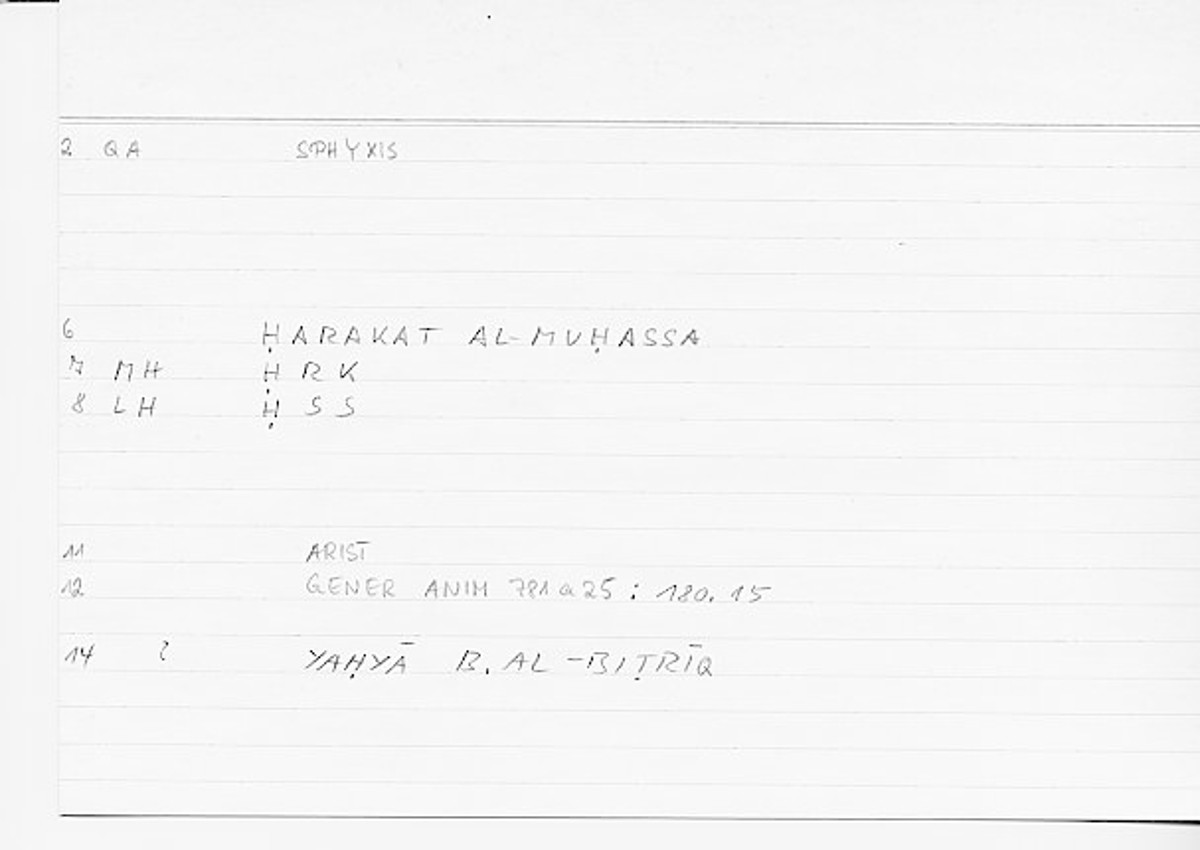 2 QA SPHYXIS
6 ḤARAKAT AL-MUḤASSA
7 MH ḤRK
8 LH ḤSS
11 ARIST
12 GENER ANIM 781a25 : 180.15
14 ? YAḤYĀ B. AL-BIṬRĪQ